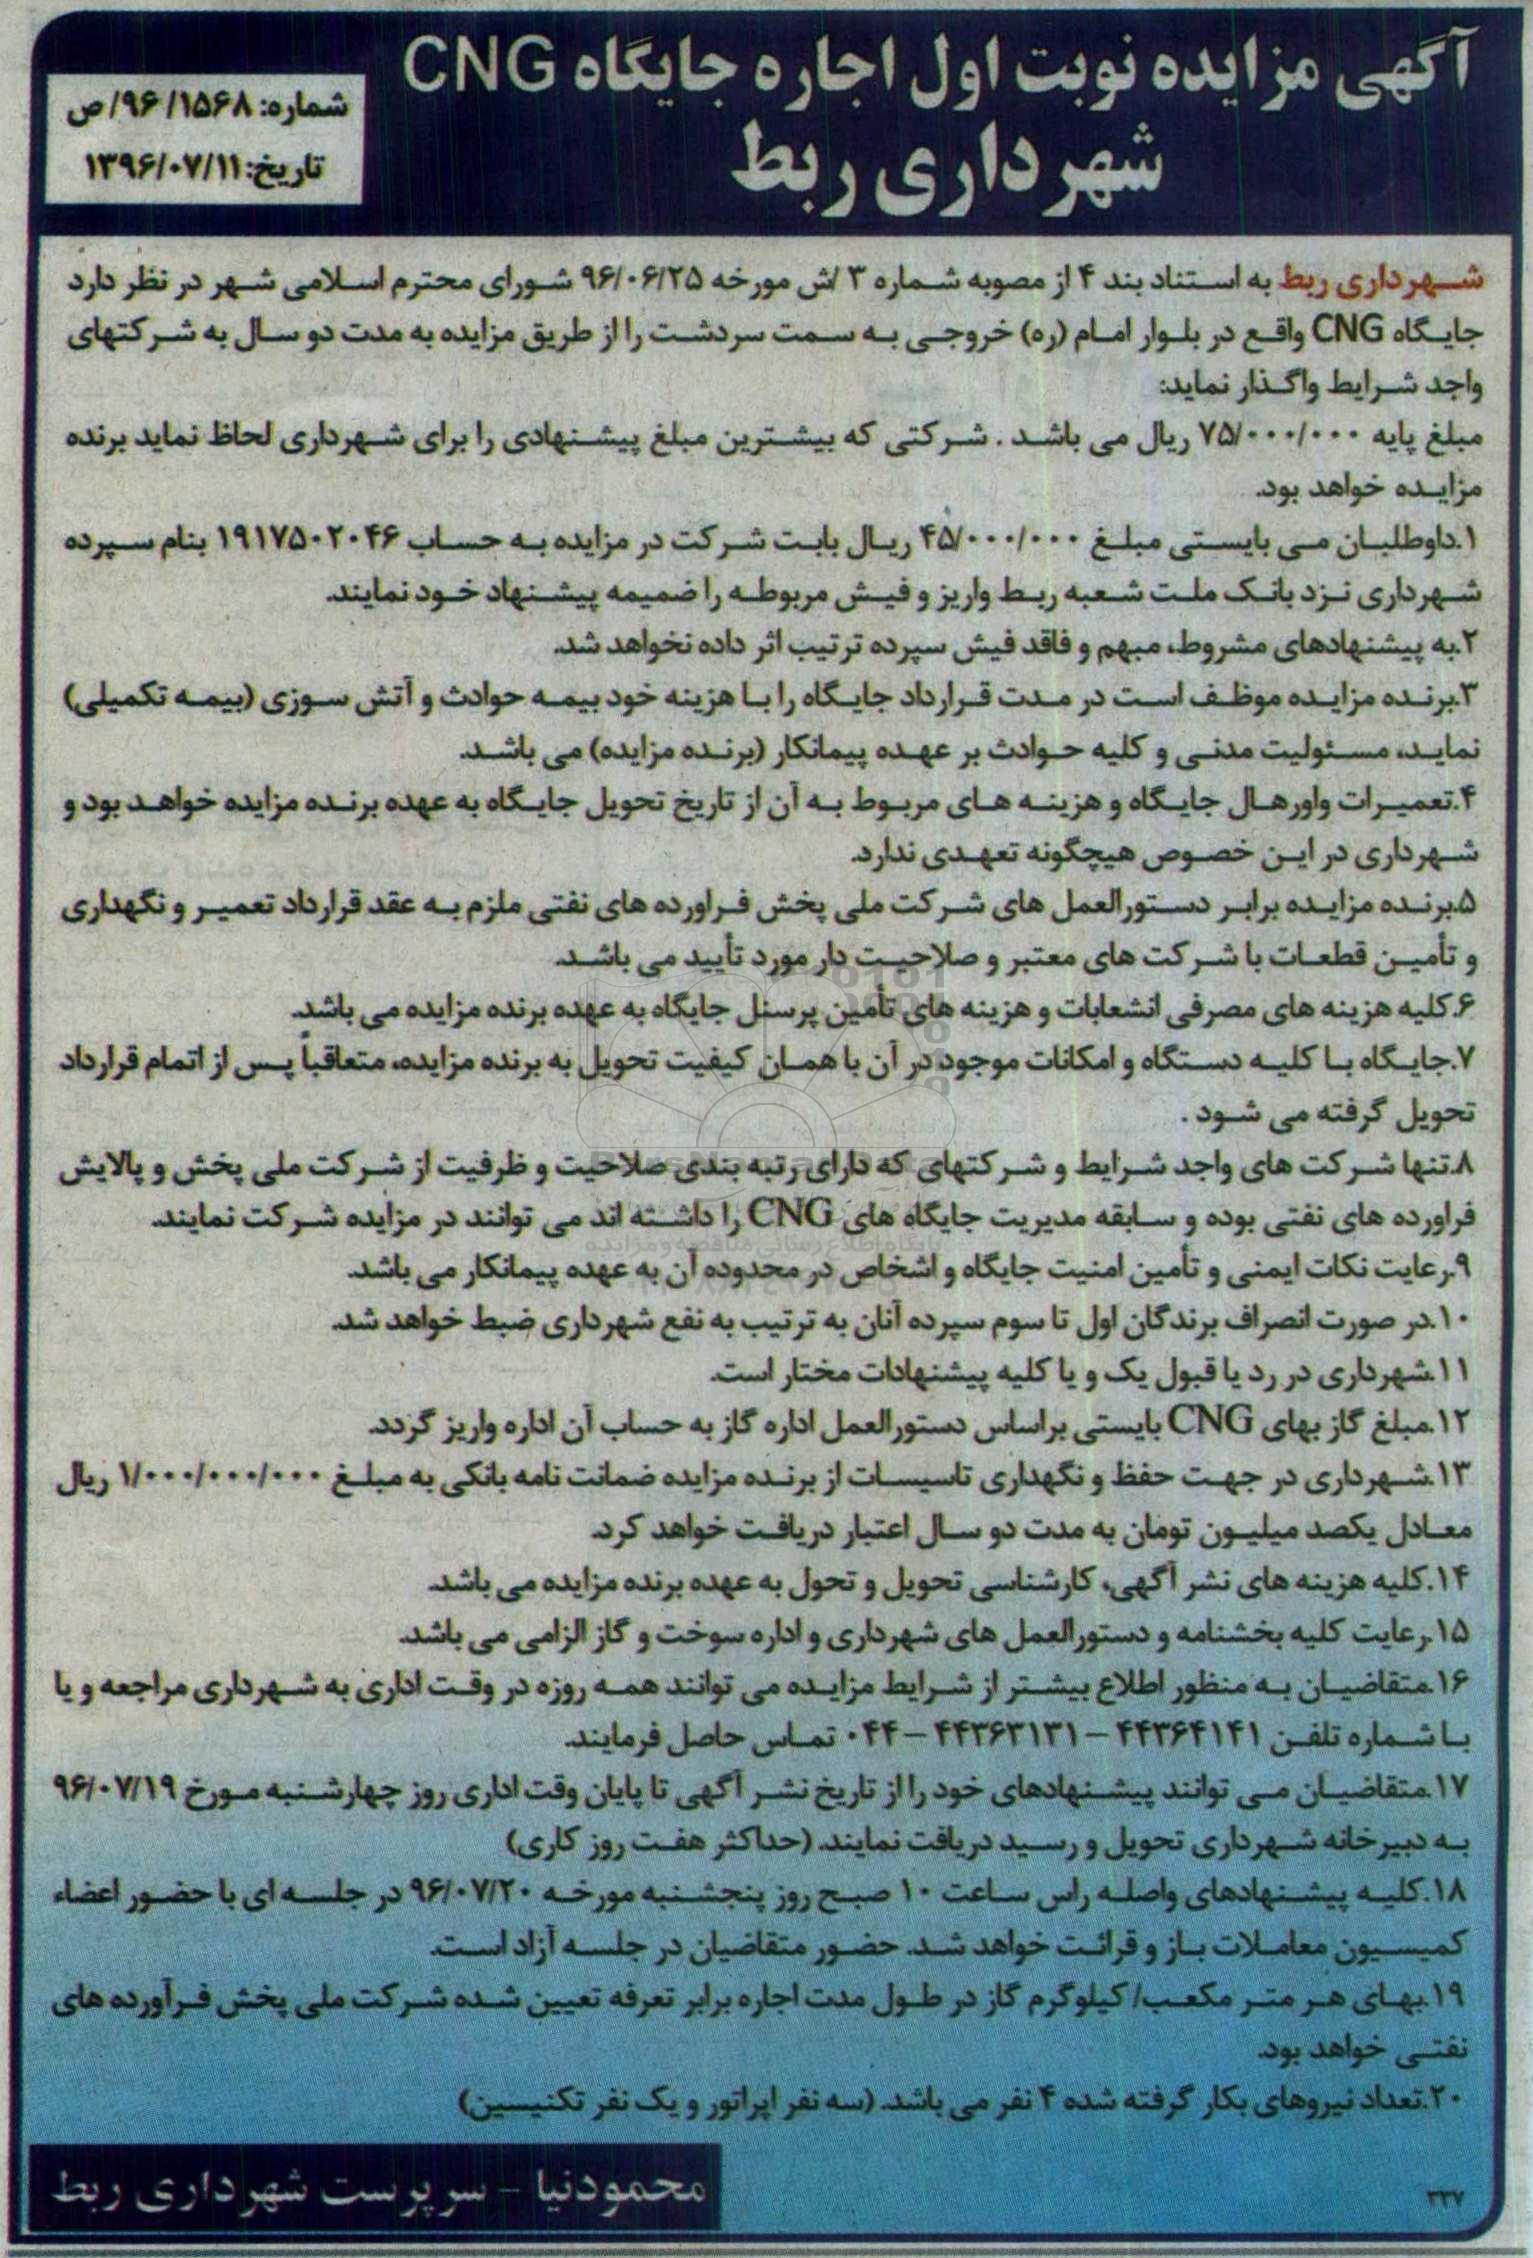 آگهی مزایده نوبت اول اجاره جایگاه CNG
شهرداری ربط
شماره: ۹۶/۱۵۶۸/ص
تاریخ: ۱۳۹۶/۰۷/۱۱
شهرداری ربط به استناد بند ۴ از مصوبه شماره ۳ /ش مورخه ۹۶/۰۶/۲۵ شورای محترم اسلامی شهر در نظر دارد
جایگاه CNG واقع در بلوار امام (ره) خروجی به سمت سردشت را از طریق مزایده به مدت دو سال به شرکتهای
واجد شرایط واگذار نماید:
مبلغ پایه ۷۵/۰۰۰/۰۰۰ ریال می باشد . شرکتی که بیشترین مبلغ پیشنهادی را برای شهرداری لحاظ نماید برنده
مزایده خواهد بود.
۱.داوطلبان می بایستی مبلغ ۴۵/۰۰۰/۰۰۰ ریال بابت شرکت در مزایده به حساب ۱۹۱۷۵۰۲۰۴۶ بنام سپرده
شهرداری نزد بانک ملت شعبه ربط واریز و فیش مربوطه را ضمیمه پیشنهاد خود نمایند.
۲.به پیشنهادهای مشروط، مبهم و فاقد فیش سپرده ترتیب اثر داده نخواهد شد.
۳.برنده مزایده موظف است در مدت قرارداد جایگاه را با هزینه خود بیمه حوادث و آتش سوزی (بیمه تکمیلی)
نماید، مسئولیت مدنی و کلیه حوادث بر عهده پیمانکار (برنده مزایده) می باشد.
۴.تعمیرات واورهال جایگاه و هزینه های مربوط به آن از تاریخ تحویل جایگاه به عهده برنده مزایده خواهد بود و
شهرداری در این خصوص هیچگونه تعهدی ندارد.
۵.برنده مزایده برابر دستورالعمل های شرکت ملی پخش فراورده های نفتی ملزم به عقد قرارداد تعمیر و نگهداری
و تأمین قطعات با شرکت های معتبر و صلاحیت دار مورد تأیید می باشد.
۶.کلیه هزینه های مصرفی انشعابات و هزینه های تأمین پرسنل جایگاه به عهده برنده مزایده می باشد.
۷.جایگاه با کلیه دستگاه و امکانات موجود در آن با همان کیفیت تحویل به برنده مزایده، متعاقباً پس از اتمام قرارداد
تحویل گرفته می شود .
۸.تنها شرکت های واجد شرایط و شرکتهای که دارای رتبه بندی صلاحیت و ظرفیت از شرکت ملی پخش و پالایش
فراورده های نفتی بوده و سابقه مدیریت جایگاه های CNG را داشته اند می توانند در مزایده شرکت نمایند.
۹.رعایت نکات ایمنی و تأمین امنیت جایگاه و اشخاص در محدوده آن به عهده پیمانکار می باشد.
۱۰.در صورت انصراف برندگان اول تا سوم سپرده آنان به ترتیب به نفع شهرداری ضبط خواهد شد.
۱۱.شهرداری در رد یا قبول یک و یا کلیه پیشنهادات مختار است.
۱۲.مبلغ گاز بهای CNG بایستی براساس دستورالعمل اداره گاز به حساب آن اداره واریز گردد.
۱۳.شهرداری در جهت حفظ و نگهداری تاسیسات از برنده مزایده ضمانت نامه بانکی به مبلغ ۱/۰۰۰/۰۰۰/۰۰۰ ریال
معادل یکصد میلیون تومان به مدت دو سال اعتبار دریافت خواهد کرد.
۱۴.کلیه هزینه های نشر آگهی، کارشناسی تحویل و تحول به عهده برنده مزایده می باشد.
۱۵.رعایت کلیه بخشنامه و دستورالعمل های شهرداری و اداره سوخت و گاز الزامی می باشد.
۱۶.متقاضیان به منظور اطلاع بیشتر از شرایط مزایده می توانند همه روزه در وقت اداری به شهرداری مراجعه و یا
با شماره تلفن ۴۴۳۶۴۱۴۱ – ۴۴۳۶۳۱۳۱ – ۰۴۴ تماس حاصل فرمایند.
۱۷.متقاضیان می توانند پیشنهادهای خود را از تاریخ نشر آگهی تا پایان وقت اداری روز چهارشنبه مورخ ۹۶/۰۷/۱۹
به دبیرخانه شهرداری تحویل و رسید دریافت نمایند. (حداکثر هفت روز کاری)
۱۸.کلیه پیشنهادهای واصله راس ساعت ۱۰ صبح روز پنجشنبه مورخه ۹۶/۰۷/۲۰ در جلسه ای با حضور اعضاء
کمیسیون معاملات باز و قرائت خواهد شد. حضور متقاضیان در جلسه آزاد است.
۱۹.بهای هر متر مکعب/کیلوگرم گاز در طول مدت اجاره برابر تعرفه تعیین شده شرکت ملی پخش فرآورده های
نفتی خواهد بود.
۲۰.تعداد نیروهای بکار گرفته شده ۴ نفر می باشد. (سه نفر اپراتور و یک نفر تکنیسین)
محمودنیا - سرپرست شهرداری ربط
۳۳۷